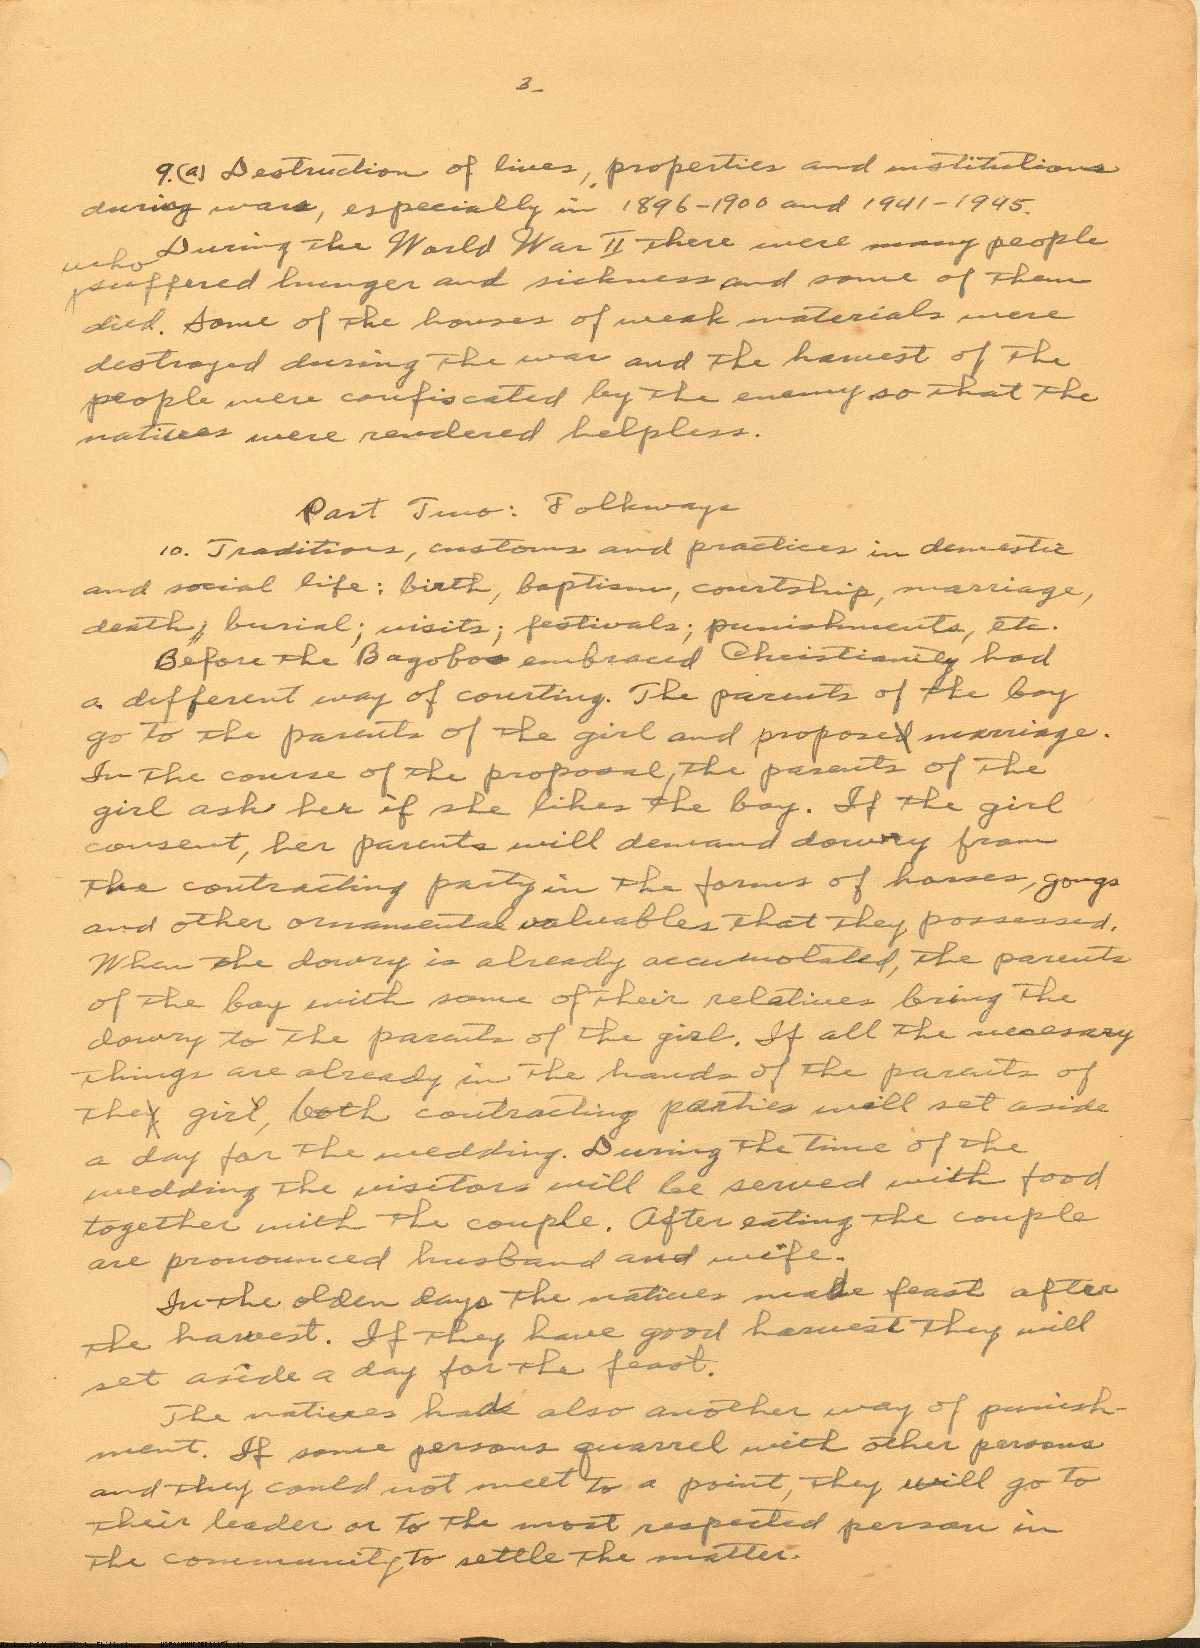 3-
9.(a) Destruction of lives, properties and institutions
during wars, especially in 1896-1900 and 1941-1945.
During the World War II there were many people
who
suffered hunger and sickness and some of them
died. Some of the houses of weak materials were
destroyed during the war and the harvest of the
people were confiscated by the enemy so that the
natives were rendered helpless.
Part Two: Folkways
10. Traditions, customs and practices in domestic
and social life: birth, baptism, courtship, marriage,
death; burial; visits; festivals; punishments, etc.
Before the Bagobos embraced Christianity had
a different way of courting. The parents of the boy
go to the parents of the girl and propose marriage.
In the course of the proposal, the parents of the
girl ask her if she likes the boy. If the girl
consent, her parents will demand dowry from
the contracting party in the forms of horses, gongs
and other ornamental valuables that they possessed.
When the dowry is already accumolated, the parents
of the boy with some of their relatives bring the
dowry to the parents of the girl. If all the necesary
things are already in the hands of the parents of
the girl, both contracting parties will set aside
a day for the wedding. During the time of the
wedding the visitors will be served with food
together with the couple. After eating the couple
are pronounced husband and wife.
In the olden days the natives made feast after
the harvest. If they have good harvest they will
set aside a day for the feast.
The natives had also another way of punish-
ment. If some persons quarrel with other persons
and they could not meet to a point, they will go to
their leader or to the most respected person in
the community to settle the matter.